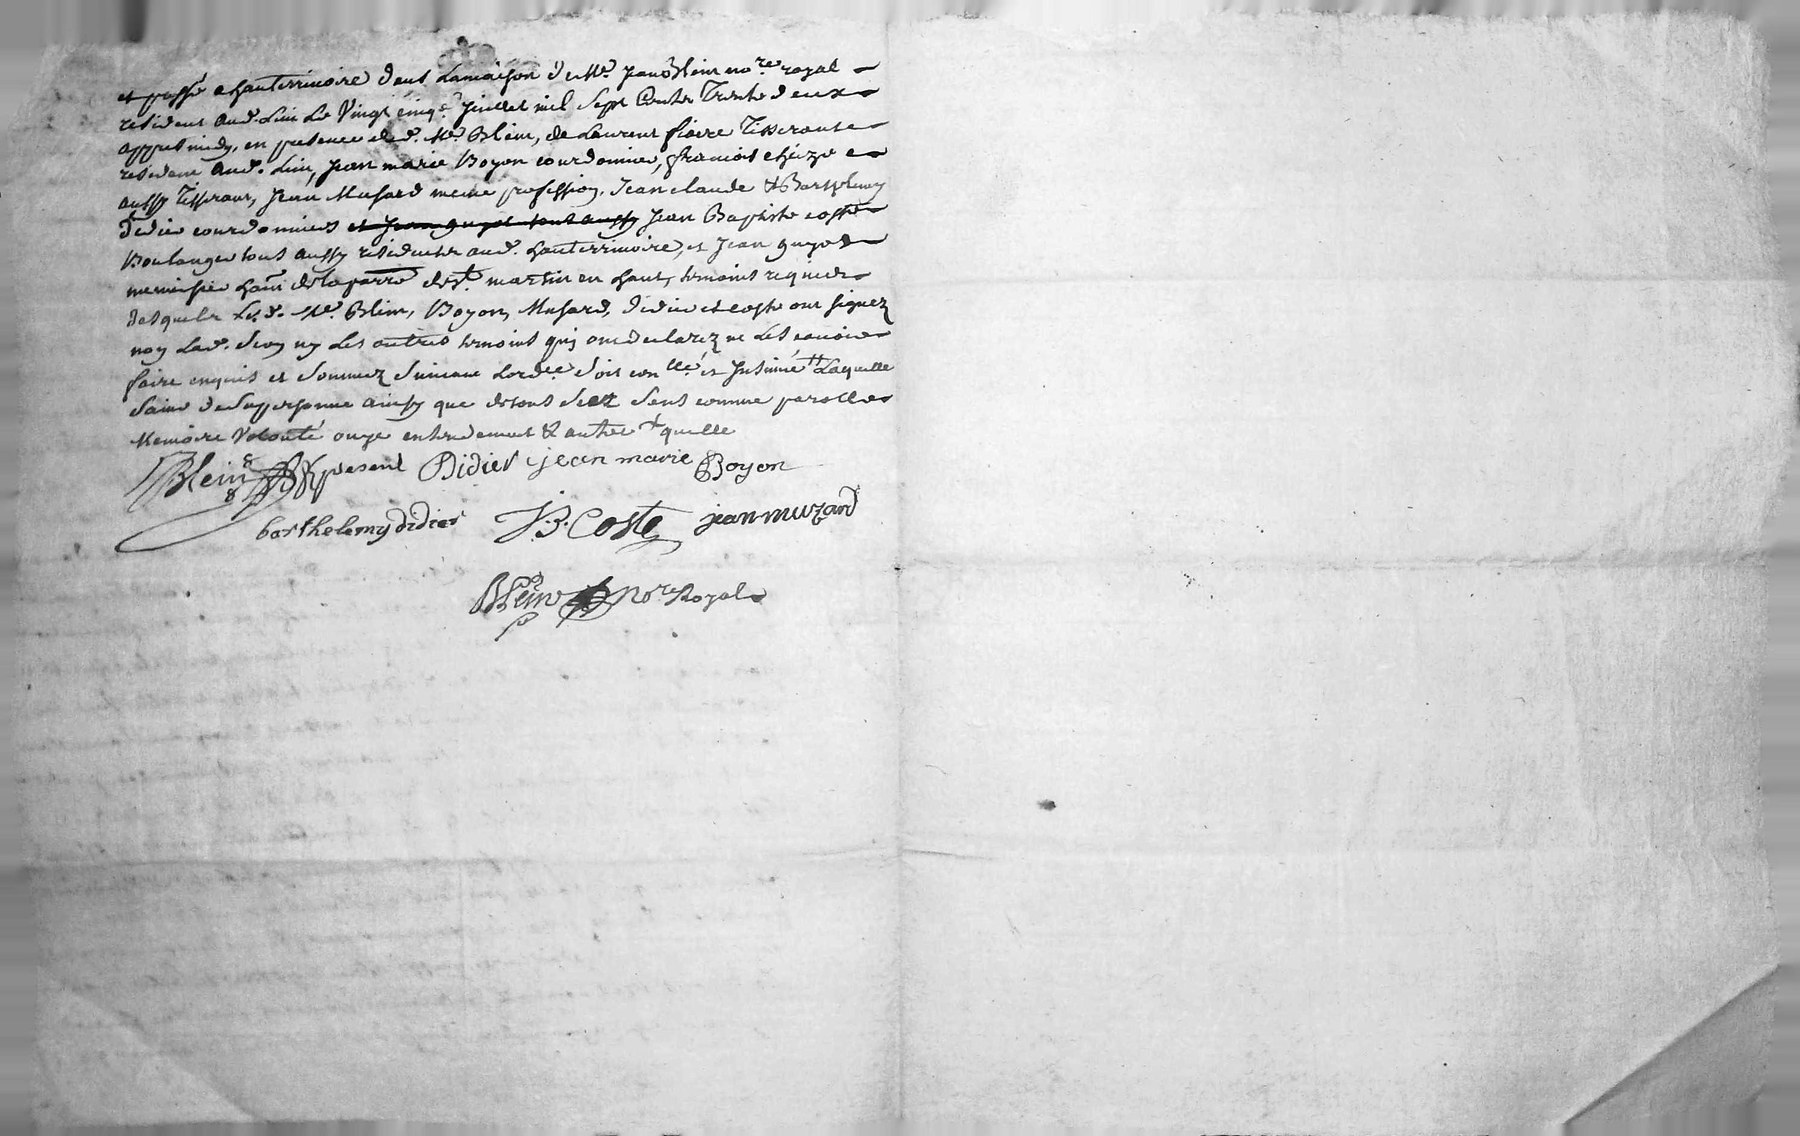 et passé a hauterrivoire dans la maison de Me. Jean Blein nore. royal
résident aud. lieu le vingt cinqe. juillet mil sept cents trente deux
appres midy, en presence dud. Me. Blein, de Laurent fiere Tisserant
résident aud. lieu, Jean marie Boyon courdonnier, francois cheize
aussy Tisserant, Jean Musard meme profession, Jean claude & Barthelemy
didier courdonniers et Jean guyot tout aussy Jean Baptiste coste
Boulanger tous aussy résidents aud. hauterrivoire, et Jean guyot
menuisier de la parre. de St. martin en haut, temoins requis
desquels led. Me. Blein, Boyon, Musard, didier et coste ont signez
non lad. ny les autres temoins qui ont declarez ne les cavoir
faire enquis et sommez suivant lordce. soit conllé. et Insinué tt Laquelle
saine de sa personne ainsy que de tous ses sens comme parolle
Memoire volonté ouye entendement & autres tt quelle
Blein present Didier jean marie Boyon
barthelemy didier J.B. Coste jean muzard
Blein nore Royal